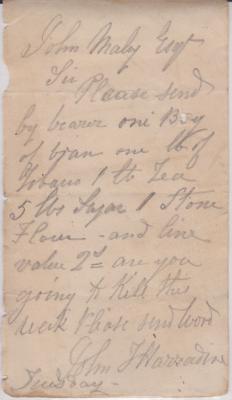 John Maly Esqr
Sir
Please send
by bearer one Bag
of bran one lb of
Tobaco 1 lb Tea
5 lbs Sugar 1 Stone
Flour - and line
value 2s = are you
going to Kill this
week Please send word
John
Tuesday -